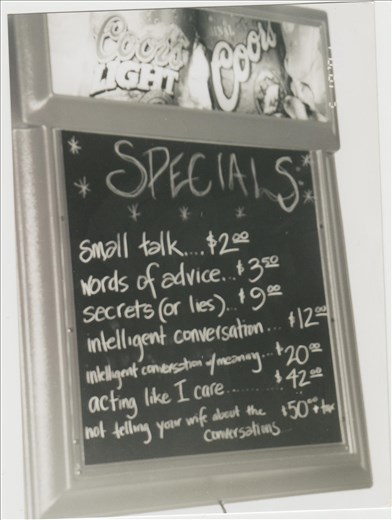 Coors LIGHT Coors
SPECIALS
small talk.... $2.00
words of advice... $3.50
secrets (or lies).. $9.00
intelligent conversation... $12.00
intelligent conversation w/meaning... $20.00
acting like I care......... $42.00
not telling your wife about the $50.00 + tax
conversations